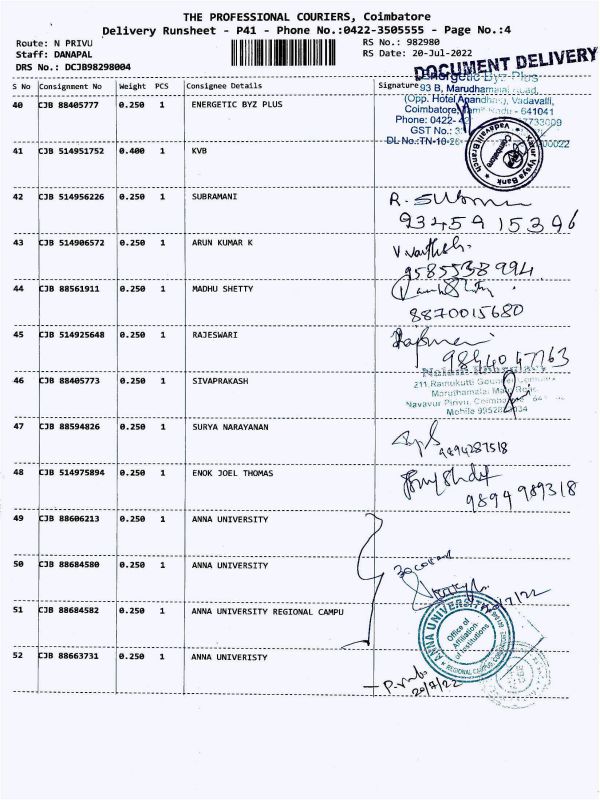 THE PROFESSIONAL COURIERS, Coimbatore
Delivery Runsheet - P41 - Phone No.:0422-3505555 - Page No.:4
Route: N PRIVU RS No.: 982980
Staff: DANAPAL RS Date: 20-Jul-2022
DRS No.: DCJB98298004
DOCUMENT DELIVERY
S No Consignment No Weight PCS Consignee Details Signature
40 CJB 88405777 0.250 1 ENERGETIC BYZ PLUS
Energetic Byz Plus
93 B, Marudhamalai Road,
(Opp. Hotel Anandhas), Vadavalli,
Coimbatore, Tamil Nadu - 641041
Phone: 0422-
GST No.:
DL No.:TN-10-
41 CJB 514951752 0.400 1 KVB
Karur Vysya Bank
Vadavalli Branch
Coimbatore
42 CJB 514956226 0.250 1 SUBRAMANI
R.
9345915396
43 CJB 514906572 0.250 1 ARUN KUMAR K
9585538994
44 CJB 88561911 0.250 1 MADHU SHETTY
8870015680
45 CJB 514925648 0.250 1 RAJESWARI
9844047763
46 CJB 88405773 0.250 1 SIVAPRAKASH
211, Ramukutti Gounder
Maruthamalai Main Road
Navavur Pirivu, Coimbatore
Mobile 99528 034
47 CJB 88594826 0.250 1 SURYA NARAYANAN
9894287518
48 CJB 514975894 0.250 1 ENOK JOEL THOMAS
9894 989318
49 CJB 88606213 0.250 1 ANNA UNIVERSITY
50 CJB 88684580 0.250 1 ANNA UNIVERSITY
51 CJB 88684582 0.250 1 ANNA UNIVERSITY REGIONAL CAMPU
ANNA UNIVERSITY
Office of
Affiliation
of Institutions
REGIONAL CAMPUS COIMBATORE
52 CJB 88663731 0.250 1 ANNA UNIVERISTY
20/7/22